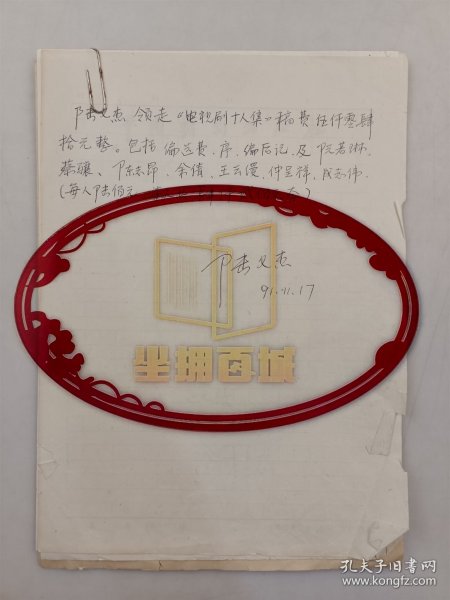 陆文杰领走《电视剧十人集》稿费伍仟零肆
拾元整。包括编选费、序、编后记及阮若琳、
蔡骧、陈志昂、余倩、王云缦、仲呈祥、成志伟.
(每人
陆文杰
91.11.17
坐拥百城
孔夫子旧书网
www.kongfz.com